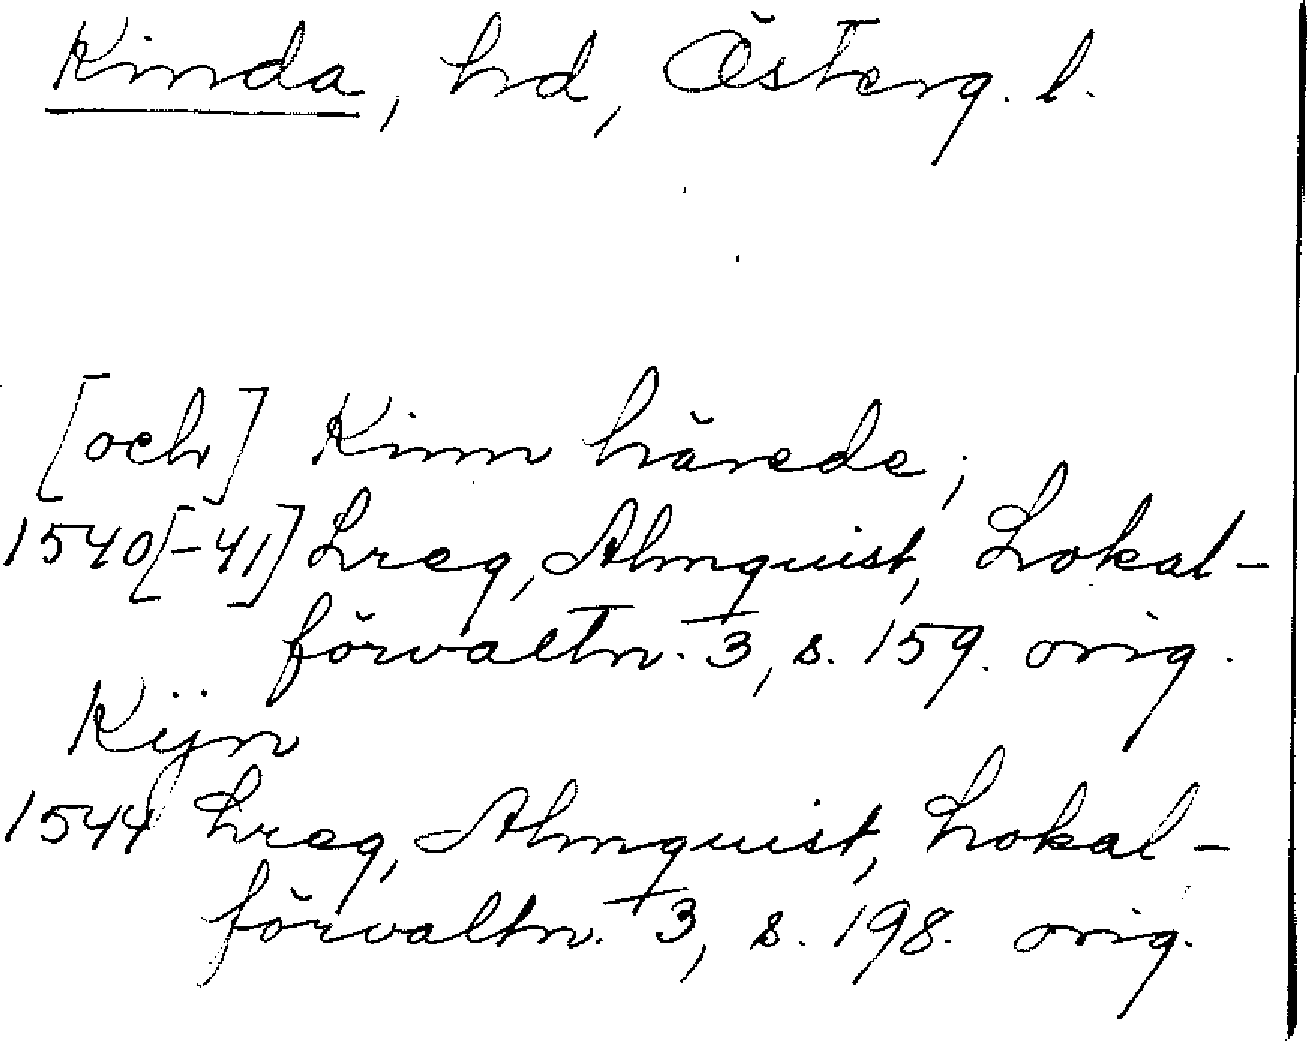 Kinda, hd, Österg. l.
[och] Kinn härede;
1540[-41] Lreg, Almquist, Lokal-
förvaltn. 3, s. 159. orig.
Kijn
1544 Lreg, Almquist, Lokal-
förvaltn. 3, s. 198. orig.